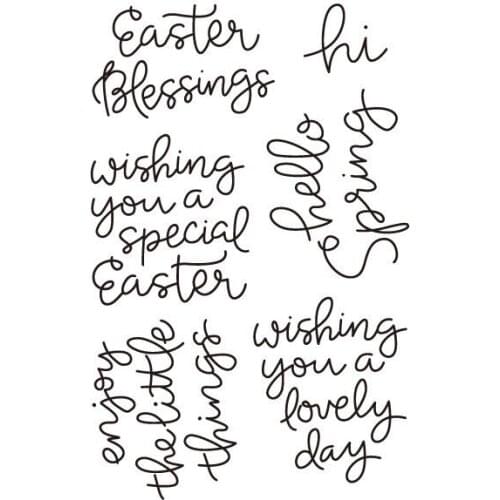 Easter
Blessings
hi
hello
Spring
wishing
you a
special
Easter
enjoy
the little
things
wishing
you a
lovely
day